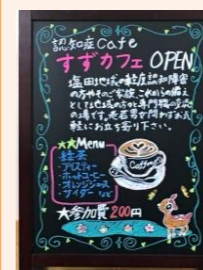 認知症Cafe
すずカフェ OPEN
塩田地域の軽度認知障害
の方やそのご家族、これから備え
として地域の方と専門職の交流
の場です。老若男女問わずお気
軽にお立ち寄り下さい。
★★Menu
・紅茶
・アイスティー
・ホットコーヒー
・オレンジジュース
・サイダー など
Coffee
★参加費200円